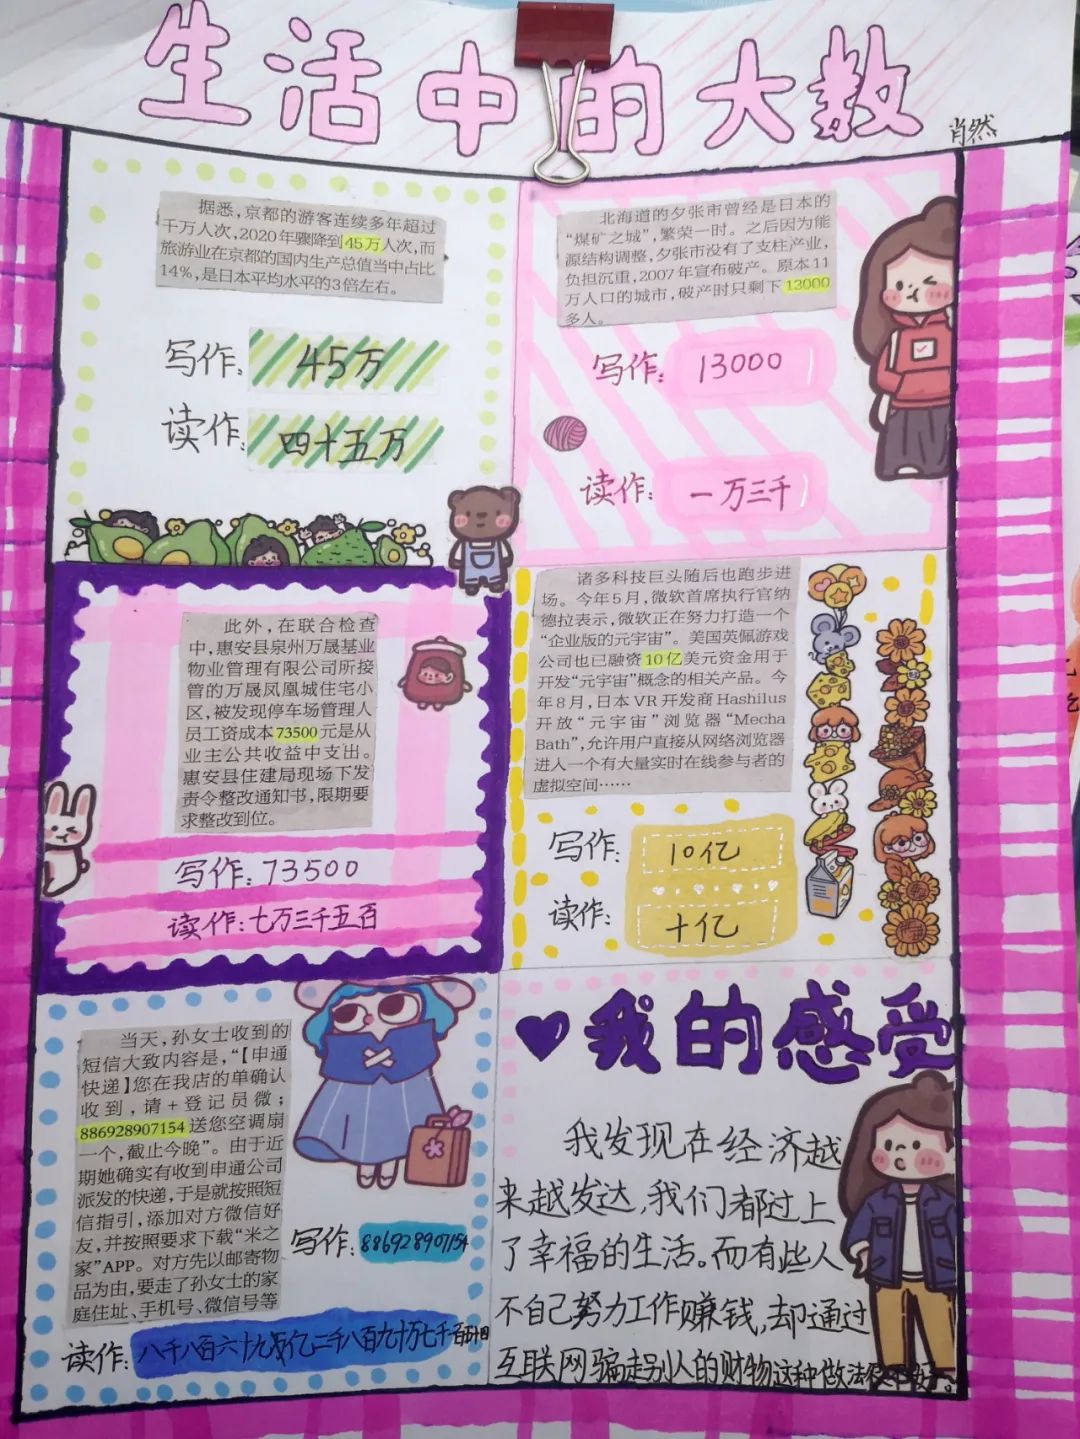 生活中的大数
肖然
据悉,京都的游客连续多年超过
千万人次,2020年骤降到45万人次,而
旅游业在京都的国内生产总值当中占比
14%,是日本平均水平的3倍左右。
写作:45万
读作:四十五万
北海道的夕张市曾经是日本的
“煤矿之城”,繁荣一时。之后因为能
源结构调整,夕张市没有了支柱产业,
负担沉重,2007年宣布破产。原本11
万人口的城市,破产时只剩下13000
多人。
写作:13000
读作:一万三千
此外,在联合检查
中,惠安县泉州万晟基业
物业管理有限公司所接
管的万晟凤凰城住宅小
区,被发现停车场管理人
员工资成本73500元是从
业主公共收益中支出。
惠安县住建局现场下发
责令整改通知书,限期要
求整改到位。
写作:73500
读作:七万三千五百
诸多科技巨头随后也跑步进
场。今年5月,微软首席执行官纳
德拉表示,微软正在努力打造一个
“企业版的元宇宙”。美国英佩游戏
公司也已融资10亿美元资金用于
开发“元宇宙”概念的相关产品。今
年8月,日本VR开发商Hashilus
开放“元宇宙”浏览器“Mecha
Bath”,允许用户直接从网络浏览器
进入一个有大量实时在线参与者的
虚拟空间……
写作:10亿
读作:十亿
当天,孙女士收到的
短信大致内容是,“【申通
快递】您在我店的单确认
收到,请+登记员微;
886928907154送您空调扇
一个,截止今晚”。由于近
期她确实有收到申通公司
派发的快递,于是就按照短
信指引,添加对方微信好
友,并按照要求下载“米之
家”APP。对方先以邮寄物
品为由,要走了孙女士的家
庭住址、手机号、微信号等
写作:886928907154
读作:八千八百六十九亿二千八百九十万七千一百五十四
我的感受
我发现在经济越
来越发达,我们都过上
了幸福的生活。而有些人
不自己努力工作赚钱,却通过
互联网骗走别人的财物这种做法很不好。